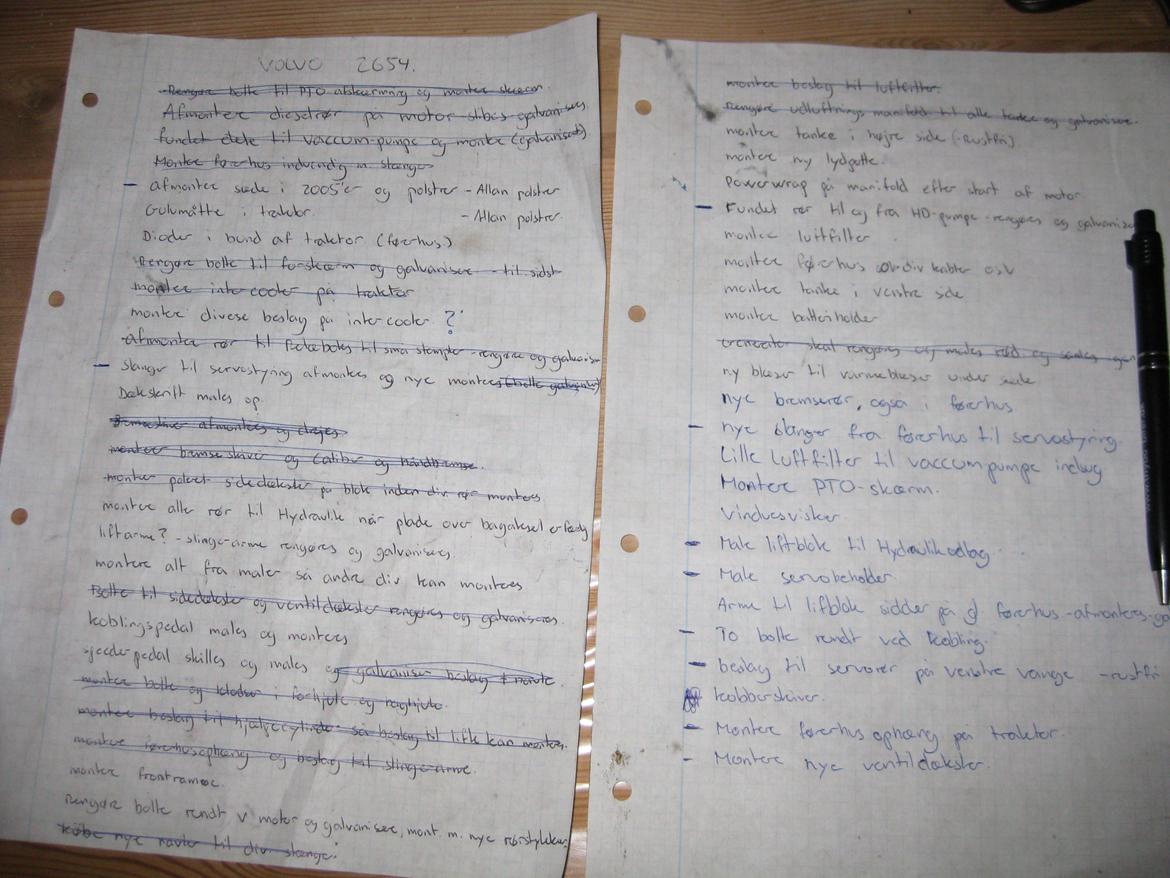 VOLVO 2654.
Rengøre bolte til PTO afskærmning og monter skærm.
Afmontere dieselrør på motor galvaniseres
fundet dele til vaccum-pumpe og monter (galvaniseret)
Monter førerhus indvendig m. slanger
- afmonter sæde i 2005'er og polstre - Allan polstrer
Gulvmåtte i traktor. - Allan polstrer.
Dioder i bund af traktor (førerhus)
Rengøre bolte til forskærm og galvanisere - til sidst
monter intercooler på traktor
monter diverse beslag på intercooler ?
Afmonter rør til små stempler - rengøre og galvaniser
- slanger til servostyring afmontes og nye monteres (bolte galvaniser)
Dækskrift males op.
Bremseskiver afmonteres og drejes
monter bremseskiver og caliber og håndbremse.
monter pakket sidedæksler på blok inden div rør monteres.
montere alle rør til Hydraulik når plade over bagaksel er færdig
liftarme? - slinge-arme rengøres og galvaniseres
montere alt fra maler så andre div kan monteres
Bolte til sidedæksler og ventildæksler rengøres og galvaniseres.
koblingspedal males og monteres
speederpedal skilles og males og galvaniser beslag + møtrik
monter bolte og klodser i forhjul og baghjul.
monter beslag til hjælpecylinder så beslag til lift kan monteres.
monter førerhusophæng og beslag til slinge-arme.
monter frontramme.
Rengøre bolte rendt v motor og galvanisere, mont m. nye rørstykker
købe nye til div slange.
monter beslag til luftfilter.
Rengøre udluftnings manifold til alle tanke og galvanisere.
monter tanke i højre side (Rustfri)
monter ny lydpotte.
Powerwrap på manifold efter start af motor
- Fundet rør til og fra HD-pumpe - rengøres og galvaniser
monter luftfilter
monter førerhus div kabler osv
monter tanke i venstre side
monter batteriholder
skal rengøres og males rød og samles
ny blæser til varmeblæser under sæde
nye bremserør, også i førerhus
- nye slanger fra førerhus til servostyring.
Lille luftfilter til vaccumpumpe indvg
Montere PTO-skærm.
Vinduesvisker
- Male liftblok til Hydraulikudtag
- Male servobeholder
Arme til liftblok sidder på gl førerhus - afmonteres - ga
- To bolte rendt ved kobling.
- beslag til servorør på venstre vange - rustfri
kobberskiver.
- Montere førerhus ophæng på traktor.
- Montere nye ventildæksler.